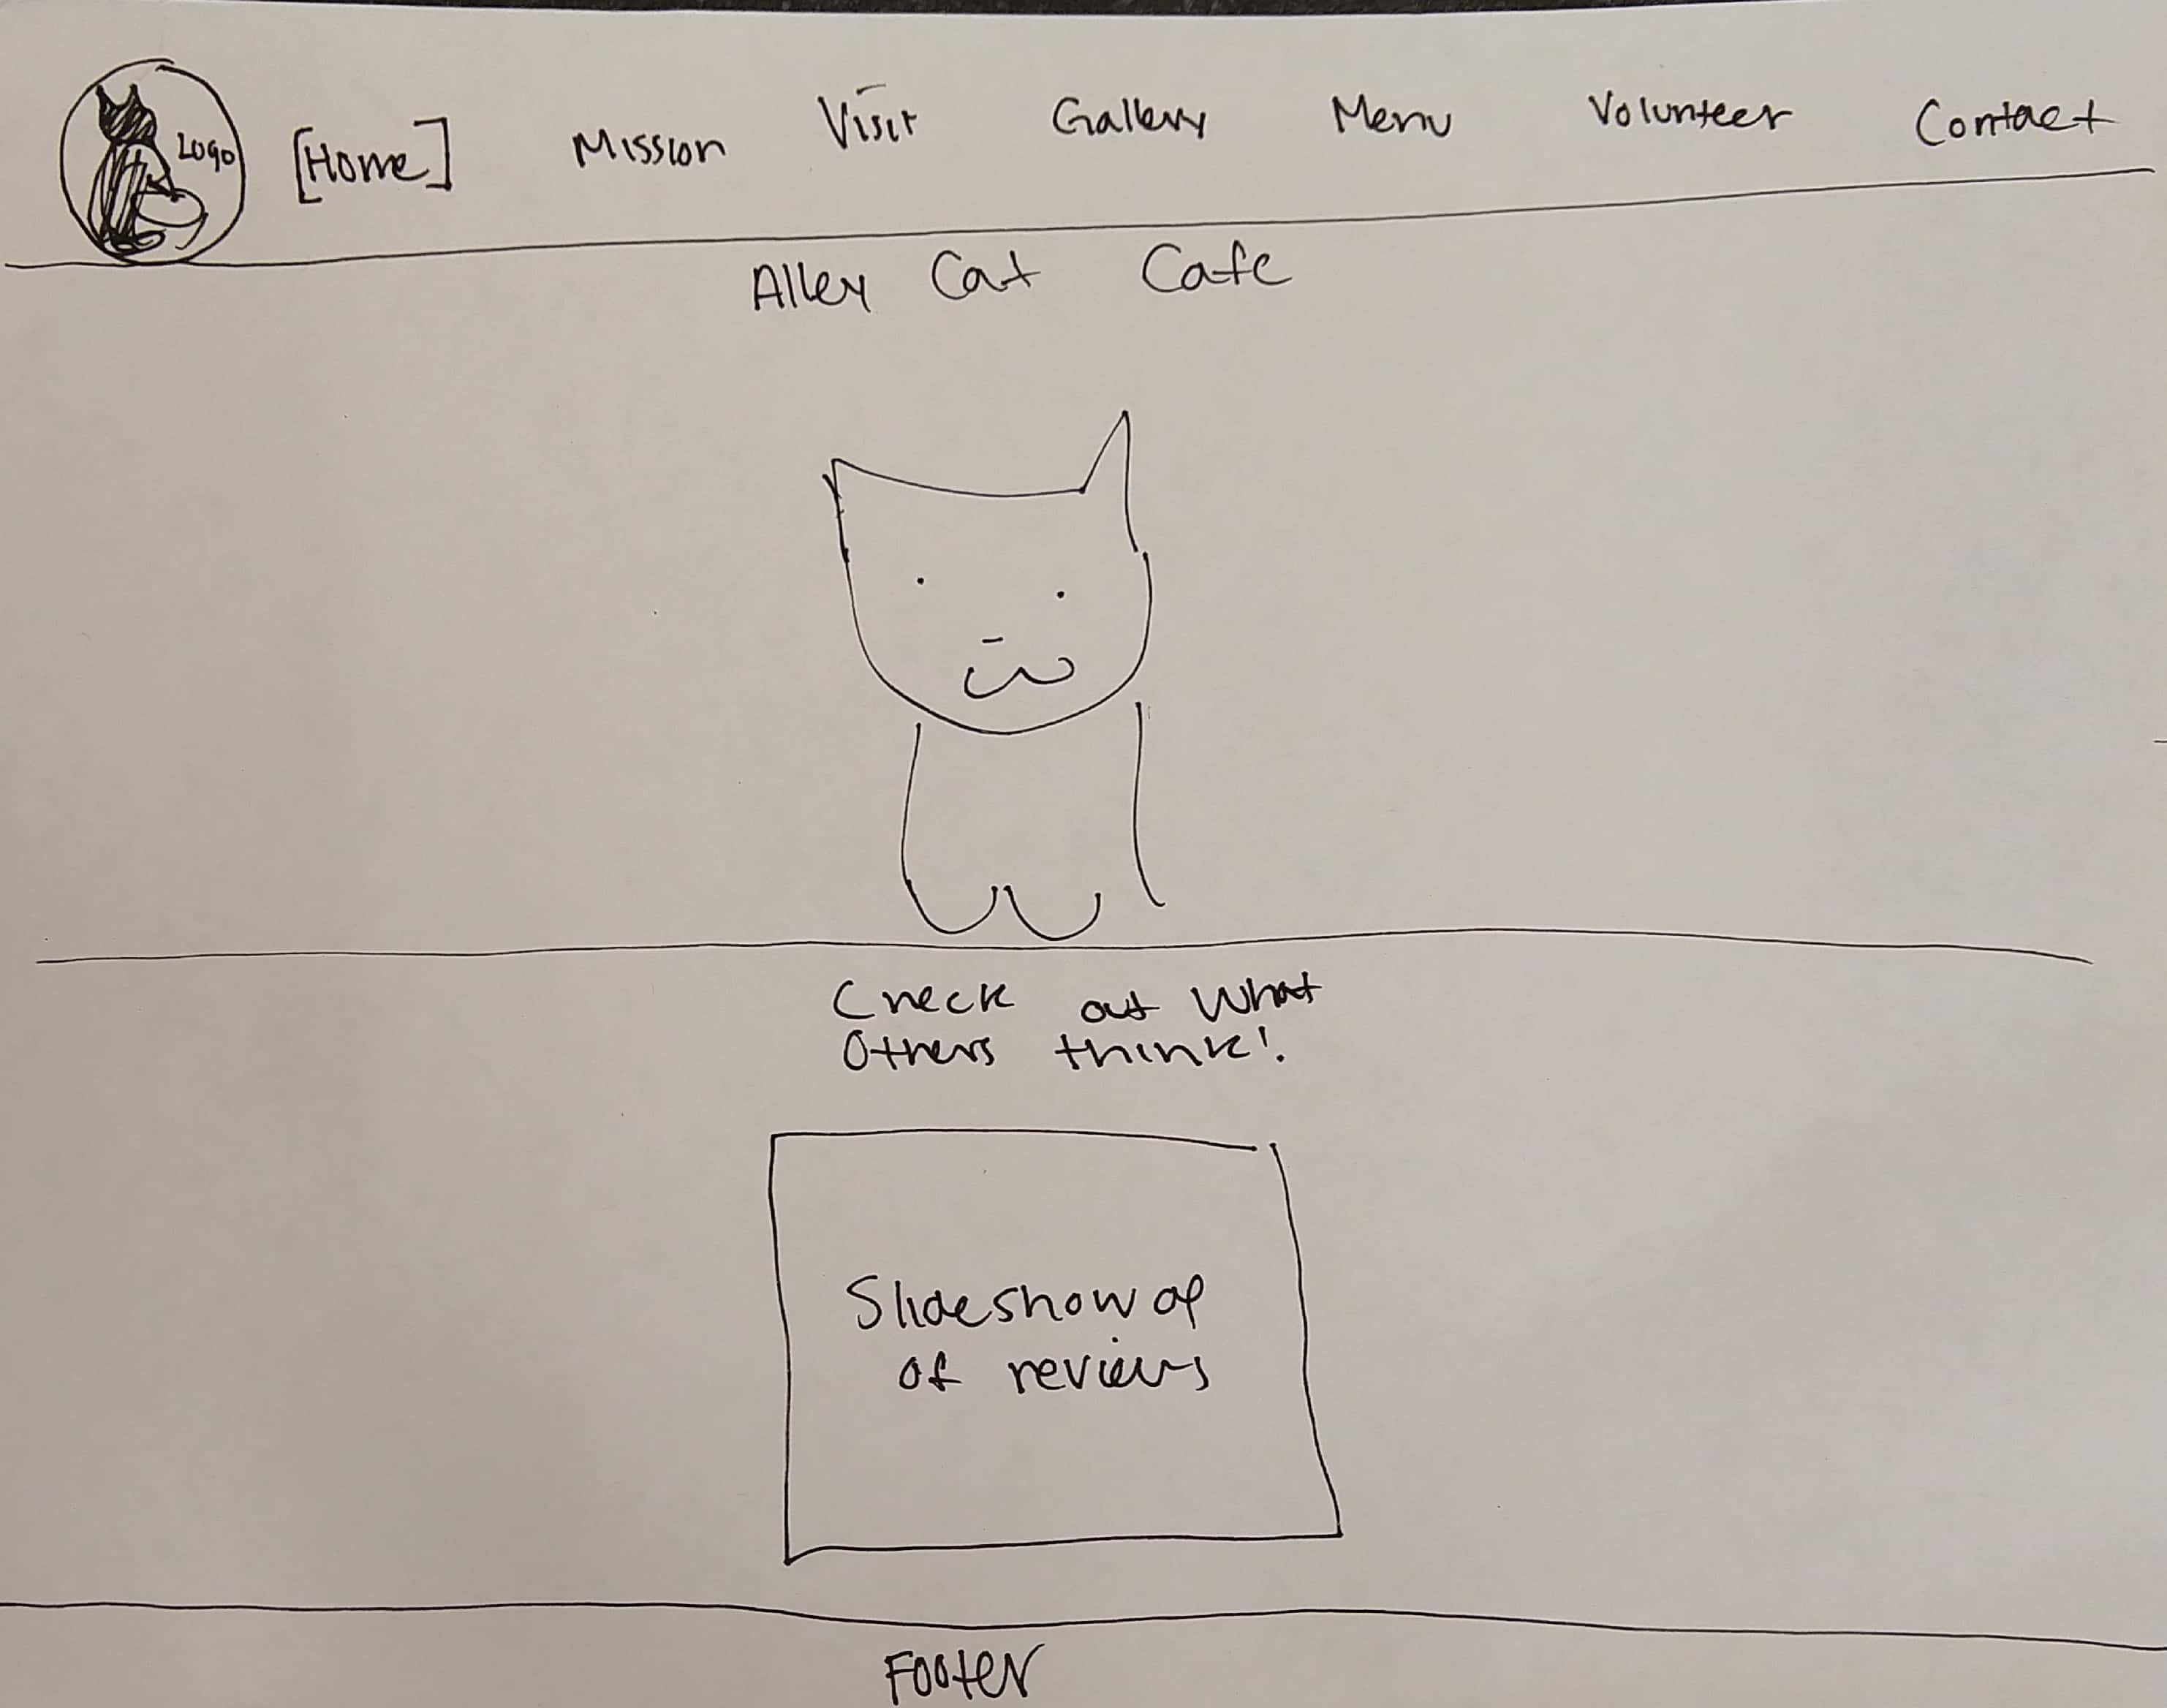 Logo
[Home] Mission Visit Gallery Menu Volunteer Contact
Alley Cat Cafe
Check out What
Others think!
Slideshow of
of reviews
Footer